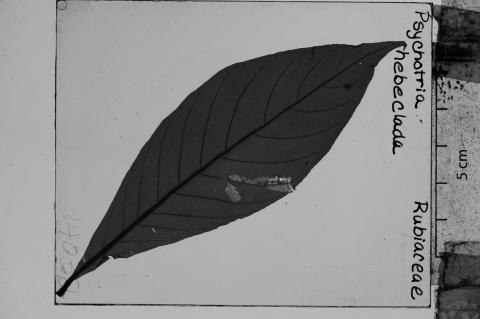 Psychotria
hebeclada
Rubiaceae
5cm